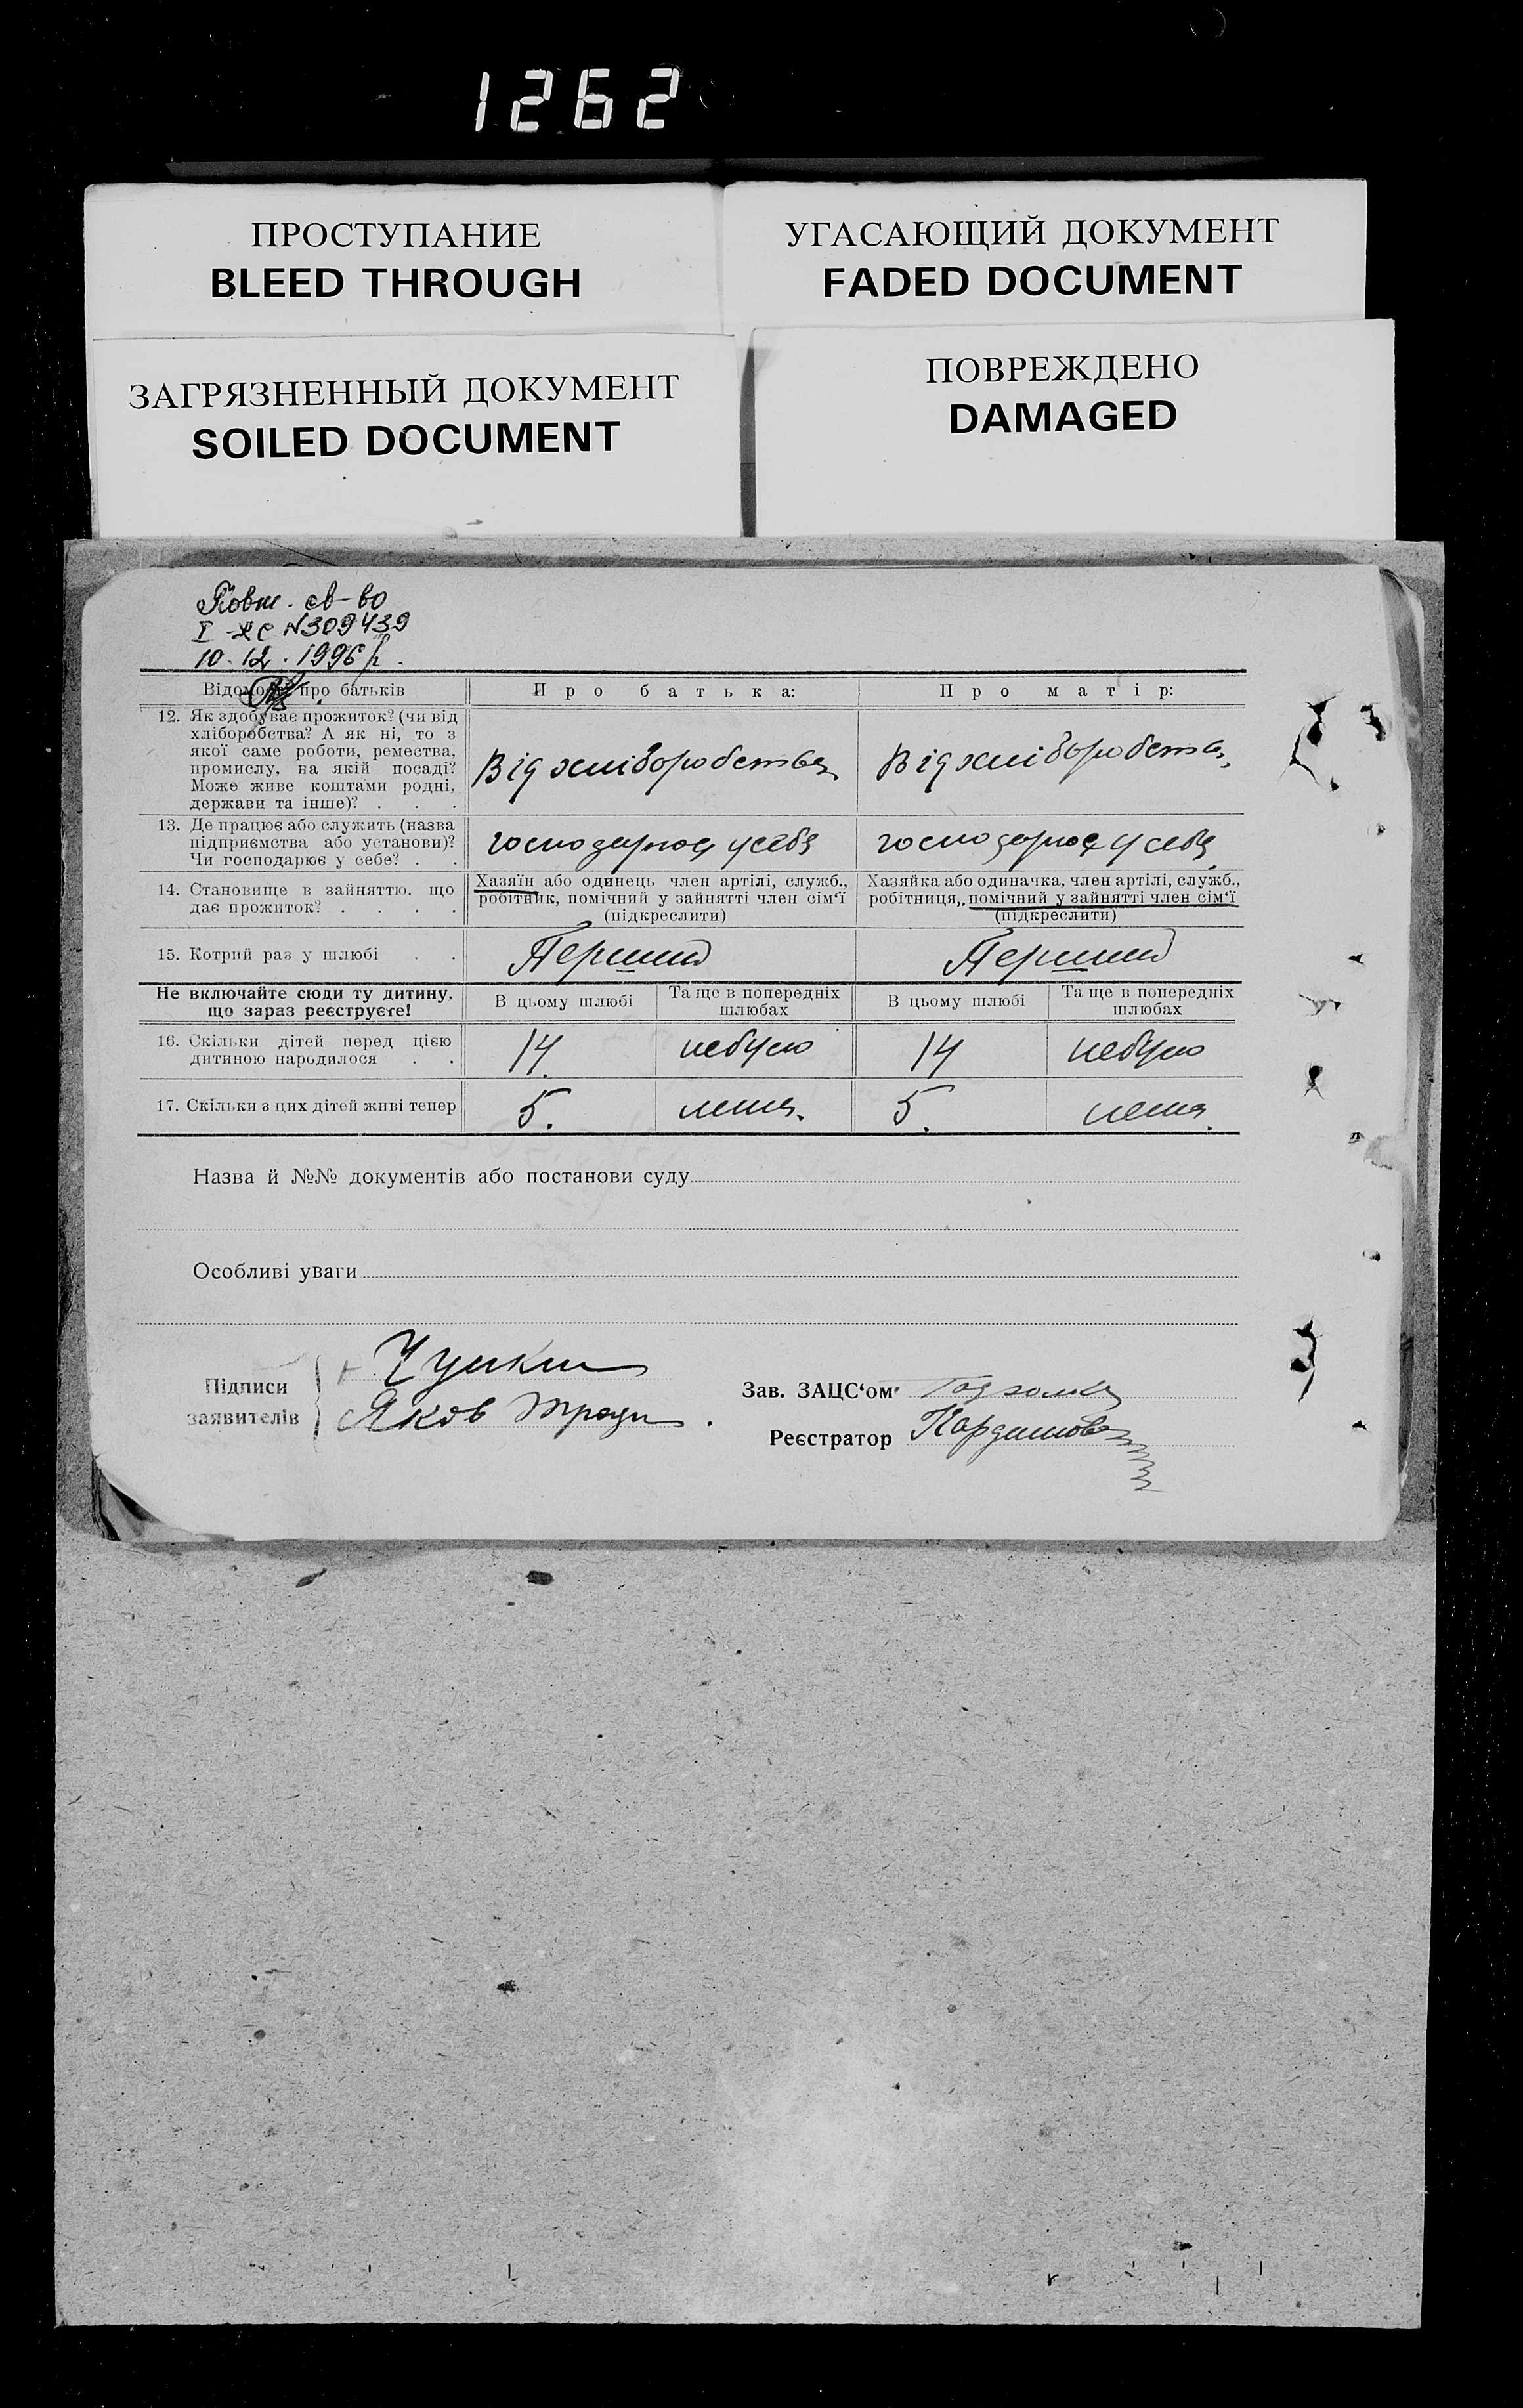 1262
ПРОСТУПАНИЕ
BLEED THROUGH
УГАСАЮЩИЙ ДОКУМЕНТ
FADED DOCUMENT
ЗАГРЯЗНЕННЫЙ ДОКУМЕНТ
SOILED DOCUMENT
ПОВРЕЖДЕНО
DAMAGED
Повт. св-во
I-ЖС №309439
10.12.1996р.
Відомості про батьків
Про батька:
Про матір:
12. Як здобуває прожиток? (чи від
хліборобства? А як ні, то з
якої саме роботи, ремества,
промислу, на якій посаді?
Може живе коштами родні,
держави та інше)? . . .
Від хліборобства
Від хліборобства
13. Де працює або служить (назва
підприємства або установи)?
Чи господарює у себе? . .
господарює у себе
господарює у себе
14. Становище в зайняттю, що
дає прожиток? . . . .
Хазяїн або одинець член артілі, служб.,
робітник, помічний у зайнятті член сім‘ї
(підкреслити)
Хазяйка або одиначка, член артілі, служб.,
робітниця, помічний у зайнятті член сім‘ї
(підкреслити)
15. Котрий раз у шлюбі . .
Перший
Перший
Не включайте сюди ту дитину,
що зараз реєструєте!
В цьому шлюбі
Та ще в попередніх
шлюбах
В цьому шлюбі
Та ще в попередніх
шлюбах
16. Скільки дітей перед цією
дитиною народилося . .
14.
небуло
14
небуло
17. Скільки з цих дітей живі тепер
5.
нема.
5.
нема.
Назва й №№ документів або постанови суду
Особливі уваги
Підписи
заявителів
Яков
Зав. ЗАЦС‘ом
Реєстратор